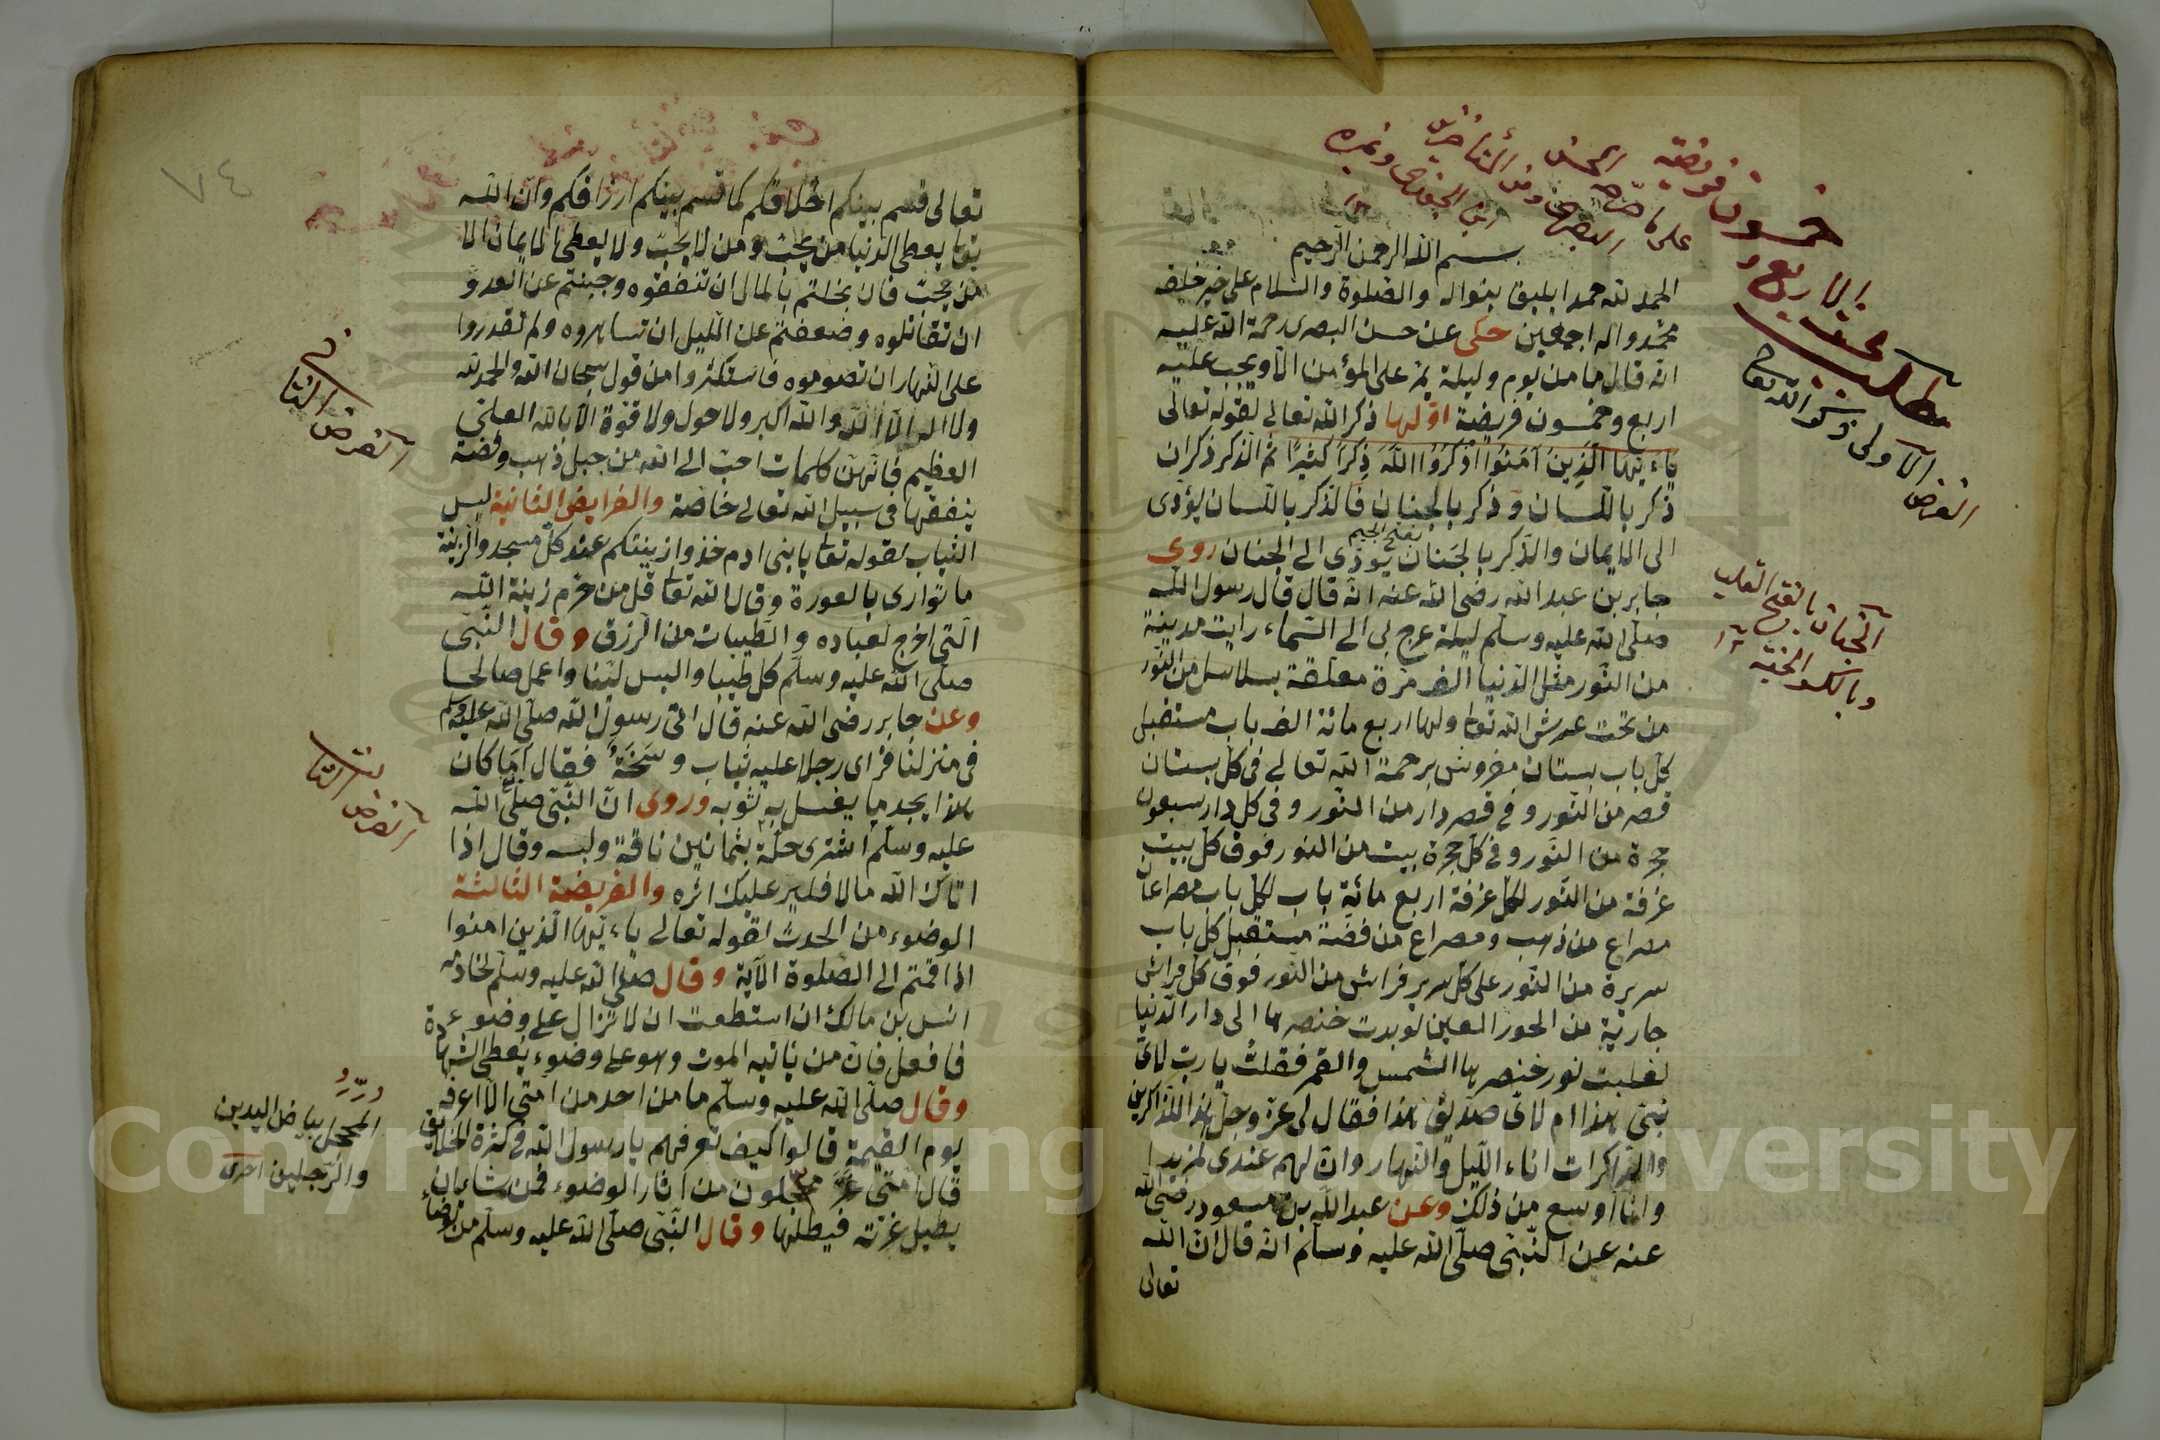 بسم الله الرحمن الرحيم
الحمد لله حمدا يليق بنواله والصلوة والسلام على خير خلقه
محمد واله اجمعين حكى عن حسن البصرى رحمة الله عليه
انه قال ما من يوم وليلة يمر على المؤمن الا ويجب عليه
اربع وخمسون فريضة اولها ذكر الله تعالى لقوله تعالى
ياءيها الذين آمنوا اذكروا الله ذكرا كثيرا ثم الذكر ذكران
ذكر باللسان وذكر بالجنان فالذكر باللسان يؤدى
الى الايمان والذكر بالجنان يؤدى الى الجنان روى
بفتح الجيم
جابر بن عبد الله رضى الله عنه انه قال قال رسول الله
صلى الله عليه وسلم ليلة عرج بى الى السماء رايت مدينة
من النور مثل الدنيا الف مرة معلقة بسلاسل من النور
من تحت عرش الله تعا ولها اربع مائة الف باب مستقبل
كل باب بستان مفروش برحمة الله تعالى فى كل بستان
قصر من النور وفى قصر دار من النور وفى كل دار سبعون
حجرة من النور وفى كل حجرة بيت من النور فوق كل بيت
غرفة من النور لكل غرفة اربع مائة باب لكل باب مصراعان
مصراع من ذهب ومصراع من فضة مستقبل كل باب
سريرة من النور على كل سرير فراش من النور فوق كل فراش
جارية من الحور العين لو بدت خنصرها الى دار الدنيا
لغلبت نور خنصرها الشمس والقمر فقلت يارب لاى
نبى هذا ام لاى صديق هذا فقال لى عز وجل هذا للذاكرين
والذاكرات اناء الليل والنهار وان لهم عندى لمزيدا
وانا اوسع من ذلك وعن عبد الله بن مسعود رضى الله
عنه عن النبى صلى الله عليه وسلم انه قال ان الله
تعالى
خمسون فريضة
الاربع و
مطلب
الفرض الاولى ذكر الله تعالى
الجنان بالفتح القلب
وبالكسر الجنة
٧٤
تعالى قسم بينكم اخلاقكم كما قسم بينكم ارزاقكم وان الله
تعا يعطى الدنيا من يحب ومن لا يحب ولا يعطى الايمان الا
من يحب فان بخلتم بالمال ان تنفقوه وجبنتم عن العدو
ان تقاتلوه وضعفتم عن الليل ان تساهروه ولم تقدروا
على النهار ان تصوموه فاستكثروا من قول سبحان الله والحمد لله
ولا اله الا الله والله اكبر ولا حول ولا قوة الا بالله العلى
العظيم فانهن كلمات احب الى الله من جبل ذهب وفضة
ينفقها فى سبيل الله تعالى خاصة والفرايض الثانية لبس
الثياب لقوله تعا يابنى ادم خذوا زينتكم عند كل مسجد والزينة
ما توارى بالعورة وقال الله تعا قل من حرم زينة الله
التى اخرج لعباده والطيبات من الرزق وقال النبى
صلى الله عليه وسلم كل طيبا والبس لينا واعمل صالحا
وعن جابر رضى الله عنه قال اتى رسول الله صلى الله عليه وسلم
فى منزلنا فراى رجلا عليه ثياب وسخة فقال اما كان
هذا يجد ما يغسل به ثوبه وروى ان النبى صلى الله
عليه وسلم اشترى حلة بثمانين ناقة ولبسه وقال اذا
اتاك الله مالا فلير عليك اثره والفريضة الثالثة
الوضوء من الحدث لقوله تعالى ياءيها الذين امنوا
اذا قمتم الى الصلوة الآية وقال صلى الله عليه وسلم لخادمه
انس بن مالك ان استطعت ان لا تزال على وضوء
فافعل فان من ياتيه الموت وهو على وضوء يعطى الشهادة
وقال صلى الله عليه وسلم ما من احد من امتى الا اعرفه
يوم القيمة قالوا كيف تعرفهم يارسول الله فى كثرة الخلايق
قال امتى غر محجلون من اثار الوضوء فمن شاء ان
يطيل غرته فيطلها وقال النبى صلى الله عليه وسلم من توضاء
الفرض الثانى
الفرض الثالث
المحجل بياض اليدين
والرجلين
Copyright © King Saud University